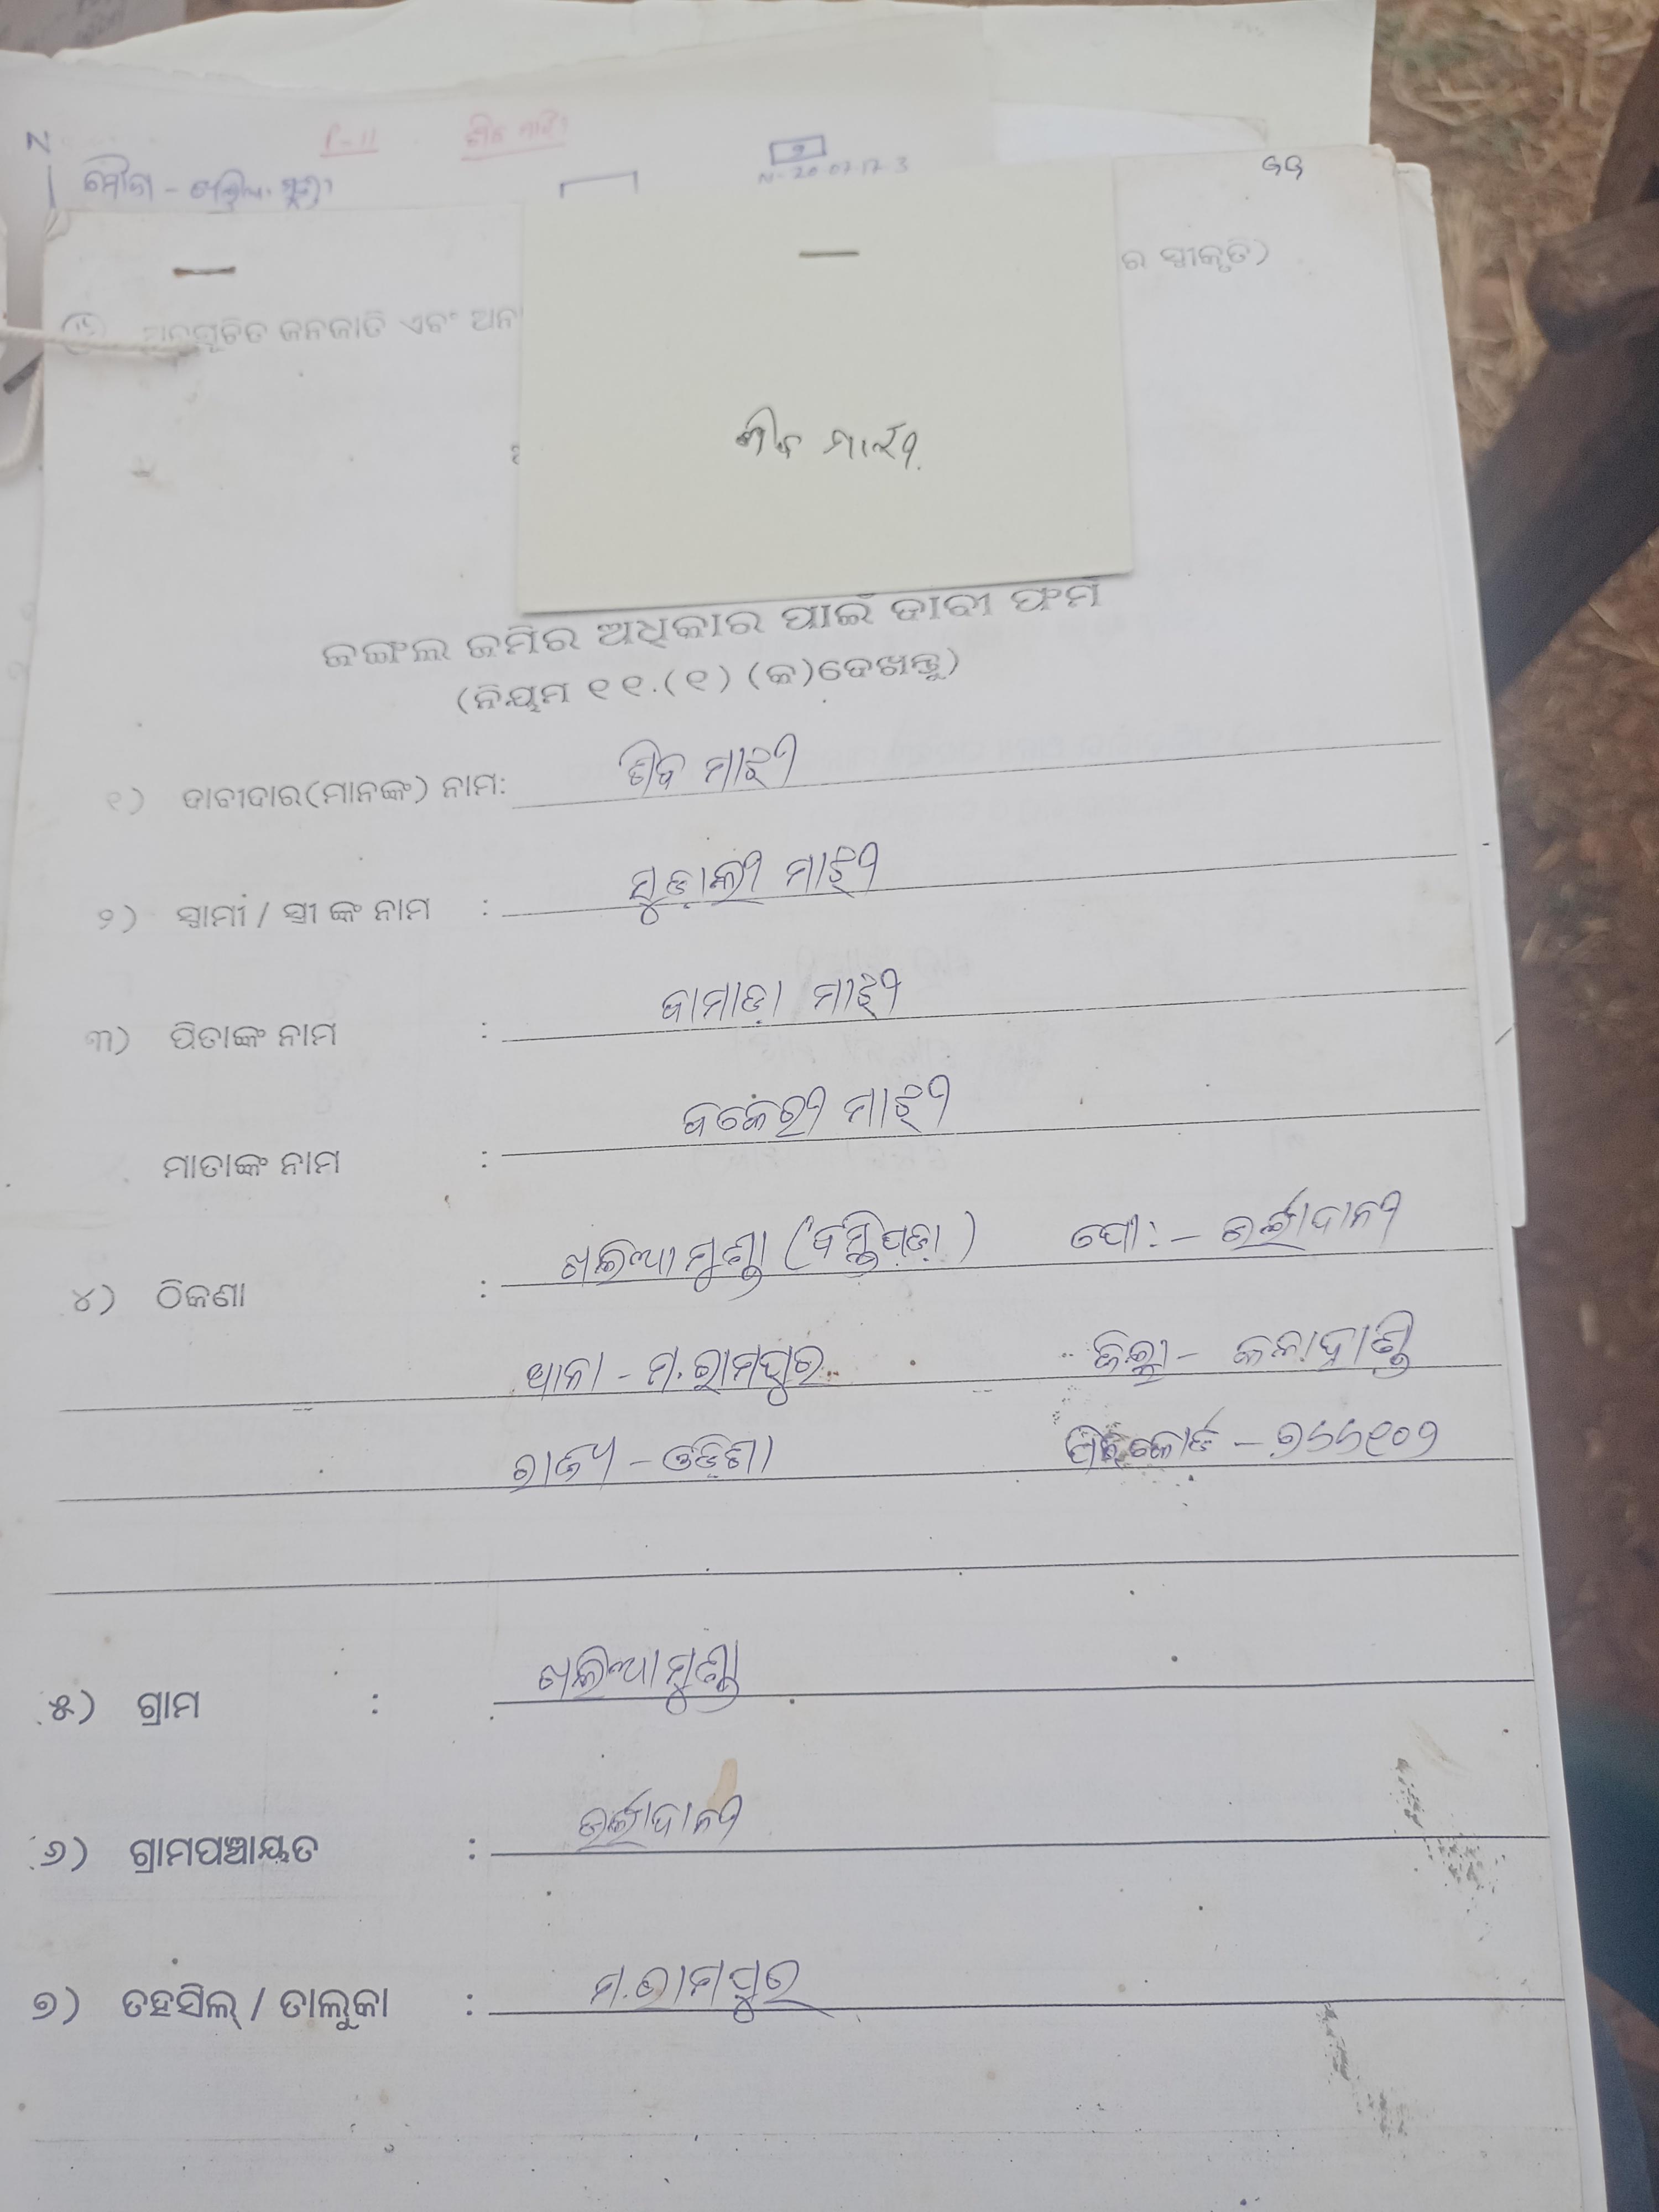 N
P-11 ଶିବ ମାଝୀ
ମୌଜା - ଖଲିଆମୁଣ୍ଡା
୨
୬୬
ର ସ୍ୱୀକୃତି)
ଅନୁସୂଚିତ ଜନଜାତି ଏବଂ ଅନ୍ୟ
ଶିବ ମାଝୀ
ଜଙ୍ଗଲ ଜମିର ଅଧିକାର ପାଇଁ ଦାବୀ ଫର୍ମ
(ନିୟମ ୧୧.(୧) (କ)ଦେଖନ୍ତୁ)
୧) ଦାବୀଦାର(ମାନଙ୍କ) ନାମ: ଶିବ ମାଝୀ
୨) ସ୍ୱାମୀ / ସ୍ତ୍ରୀ ଙ୍କ ନାମ : ସୁଡ଼ାଲୀ ମାଝୀ
୩) ପିତାଙ୍କ ନାମ : ବାମାଡ଼ା ମାଝୀ
ମାତାଙ୍କ ନାମ : ବକେରୀ ମାଝୀ
୪) ଠିକଣା : ଖଲିଆମୁଣ୍ଡା (ବସ୍ତିପଡ଼ା) ପୋ:-
ଥାନା - ମ.ରାମପୁର ଜିଲ୍ଲା - କଳାହାଣ୍ଡି
ରାଜ୍ୟ - ଓଡ଼ିଶା ପିନକୋଡ - ୭୬୬୧୦୨
୫) ଗ୍ରାମ : ଖଲିଆମୁଣ୍ଡା
୬) ଗ୍ରାମପଞ୍ଚାୟତ :
୭) ତହସିଲ୍ / ତାଲୁକା : ମ.ରାମପୁର